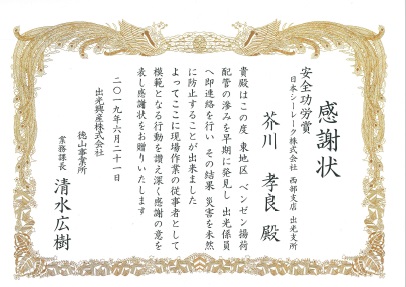 感謝状
安全功労賞
日本シーレーク株式会社 西部支店 出光支所
芥川 孝良 殿
貴殿はこの度 東地区 ベンゼン揚荷
配管の滲みを早期に発見し 出光係員
へ即連絡を行い その結果 災害を未然
に防止することが出来ました
よってここに現場作業の従事者として
模範となる行動を讃え深く感謝の意を
表し感謝状をお贈りいたします
二〇一九年六月二十一日
出光興産株式会社
徳山事業所
業務課長 清水広樹